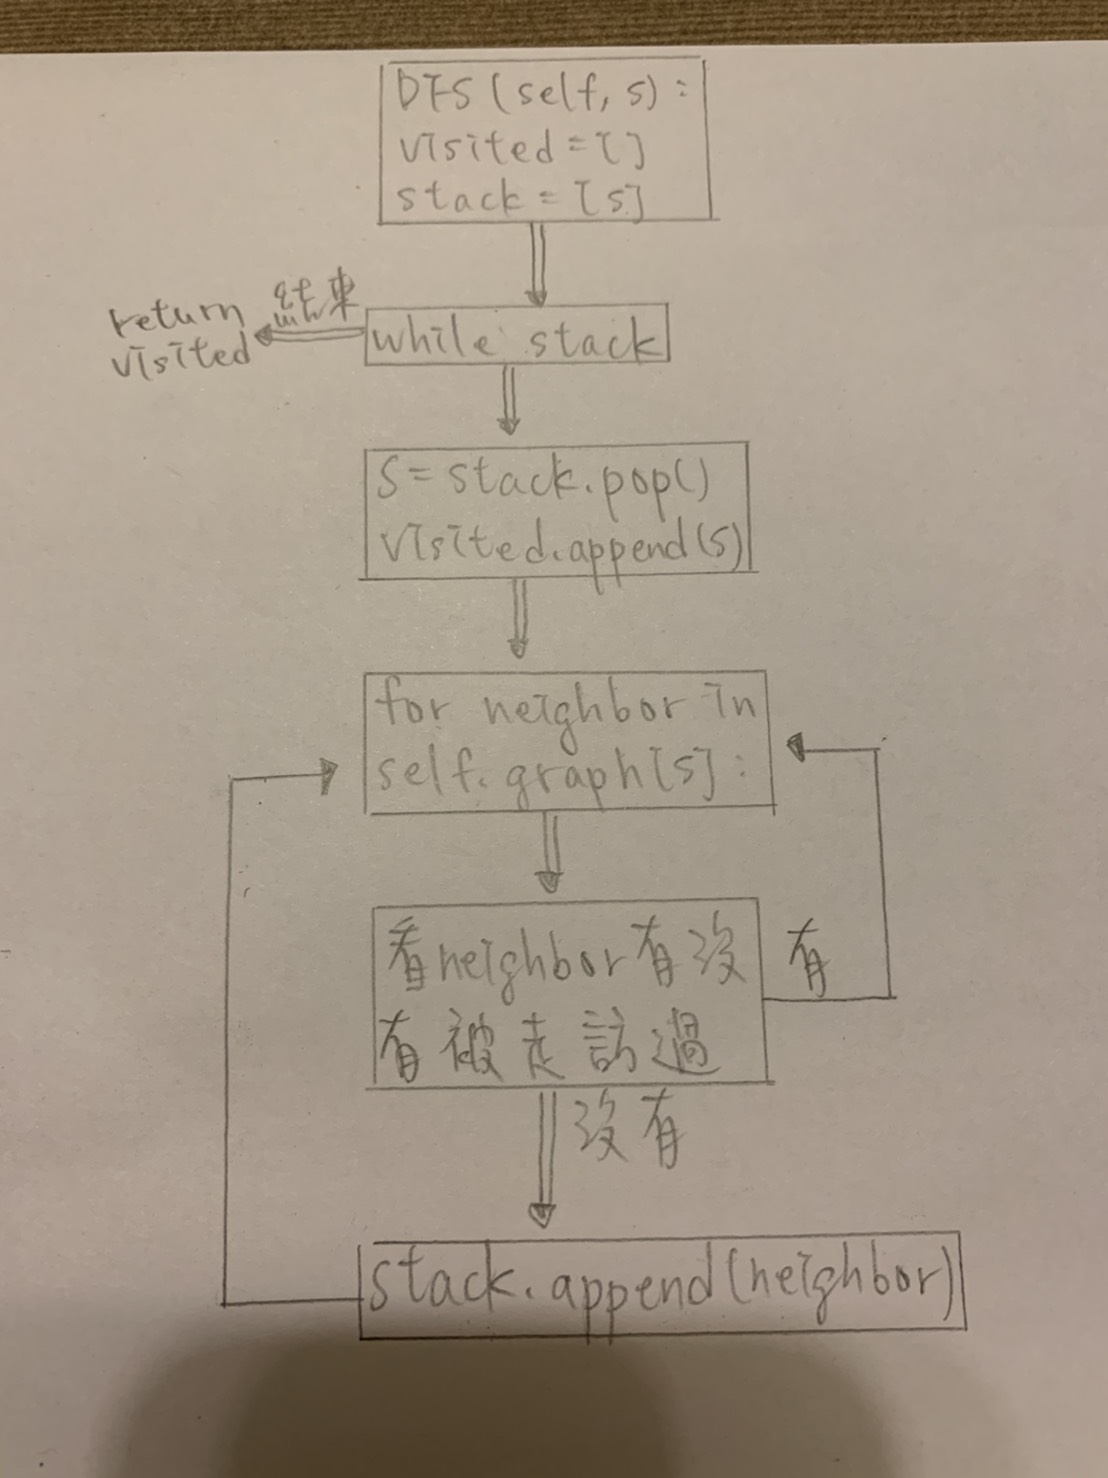 DFS (self, s) :
visited = [ ]
stack = [s]
結束
return
visited
while stack
S = stack.pop()
visited.append(s)
for neighbor in
self.graph[s] :
看neighbor有沒
有被走訪過
有
沒有
stack.append(neighbor)